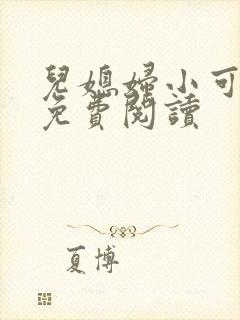 兒媳婦小可
免費閱讀
夏博